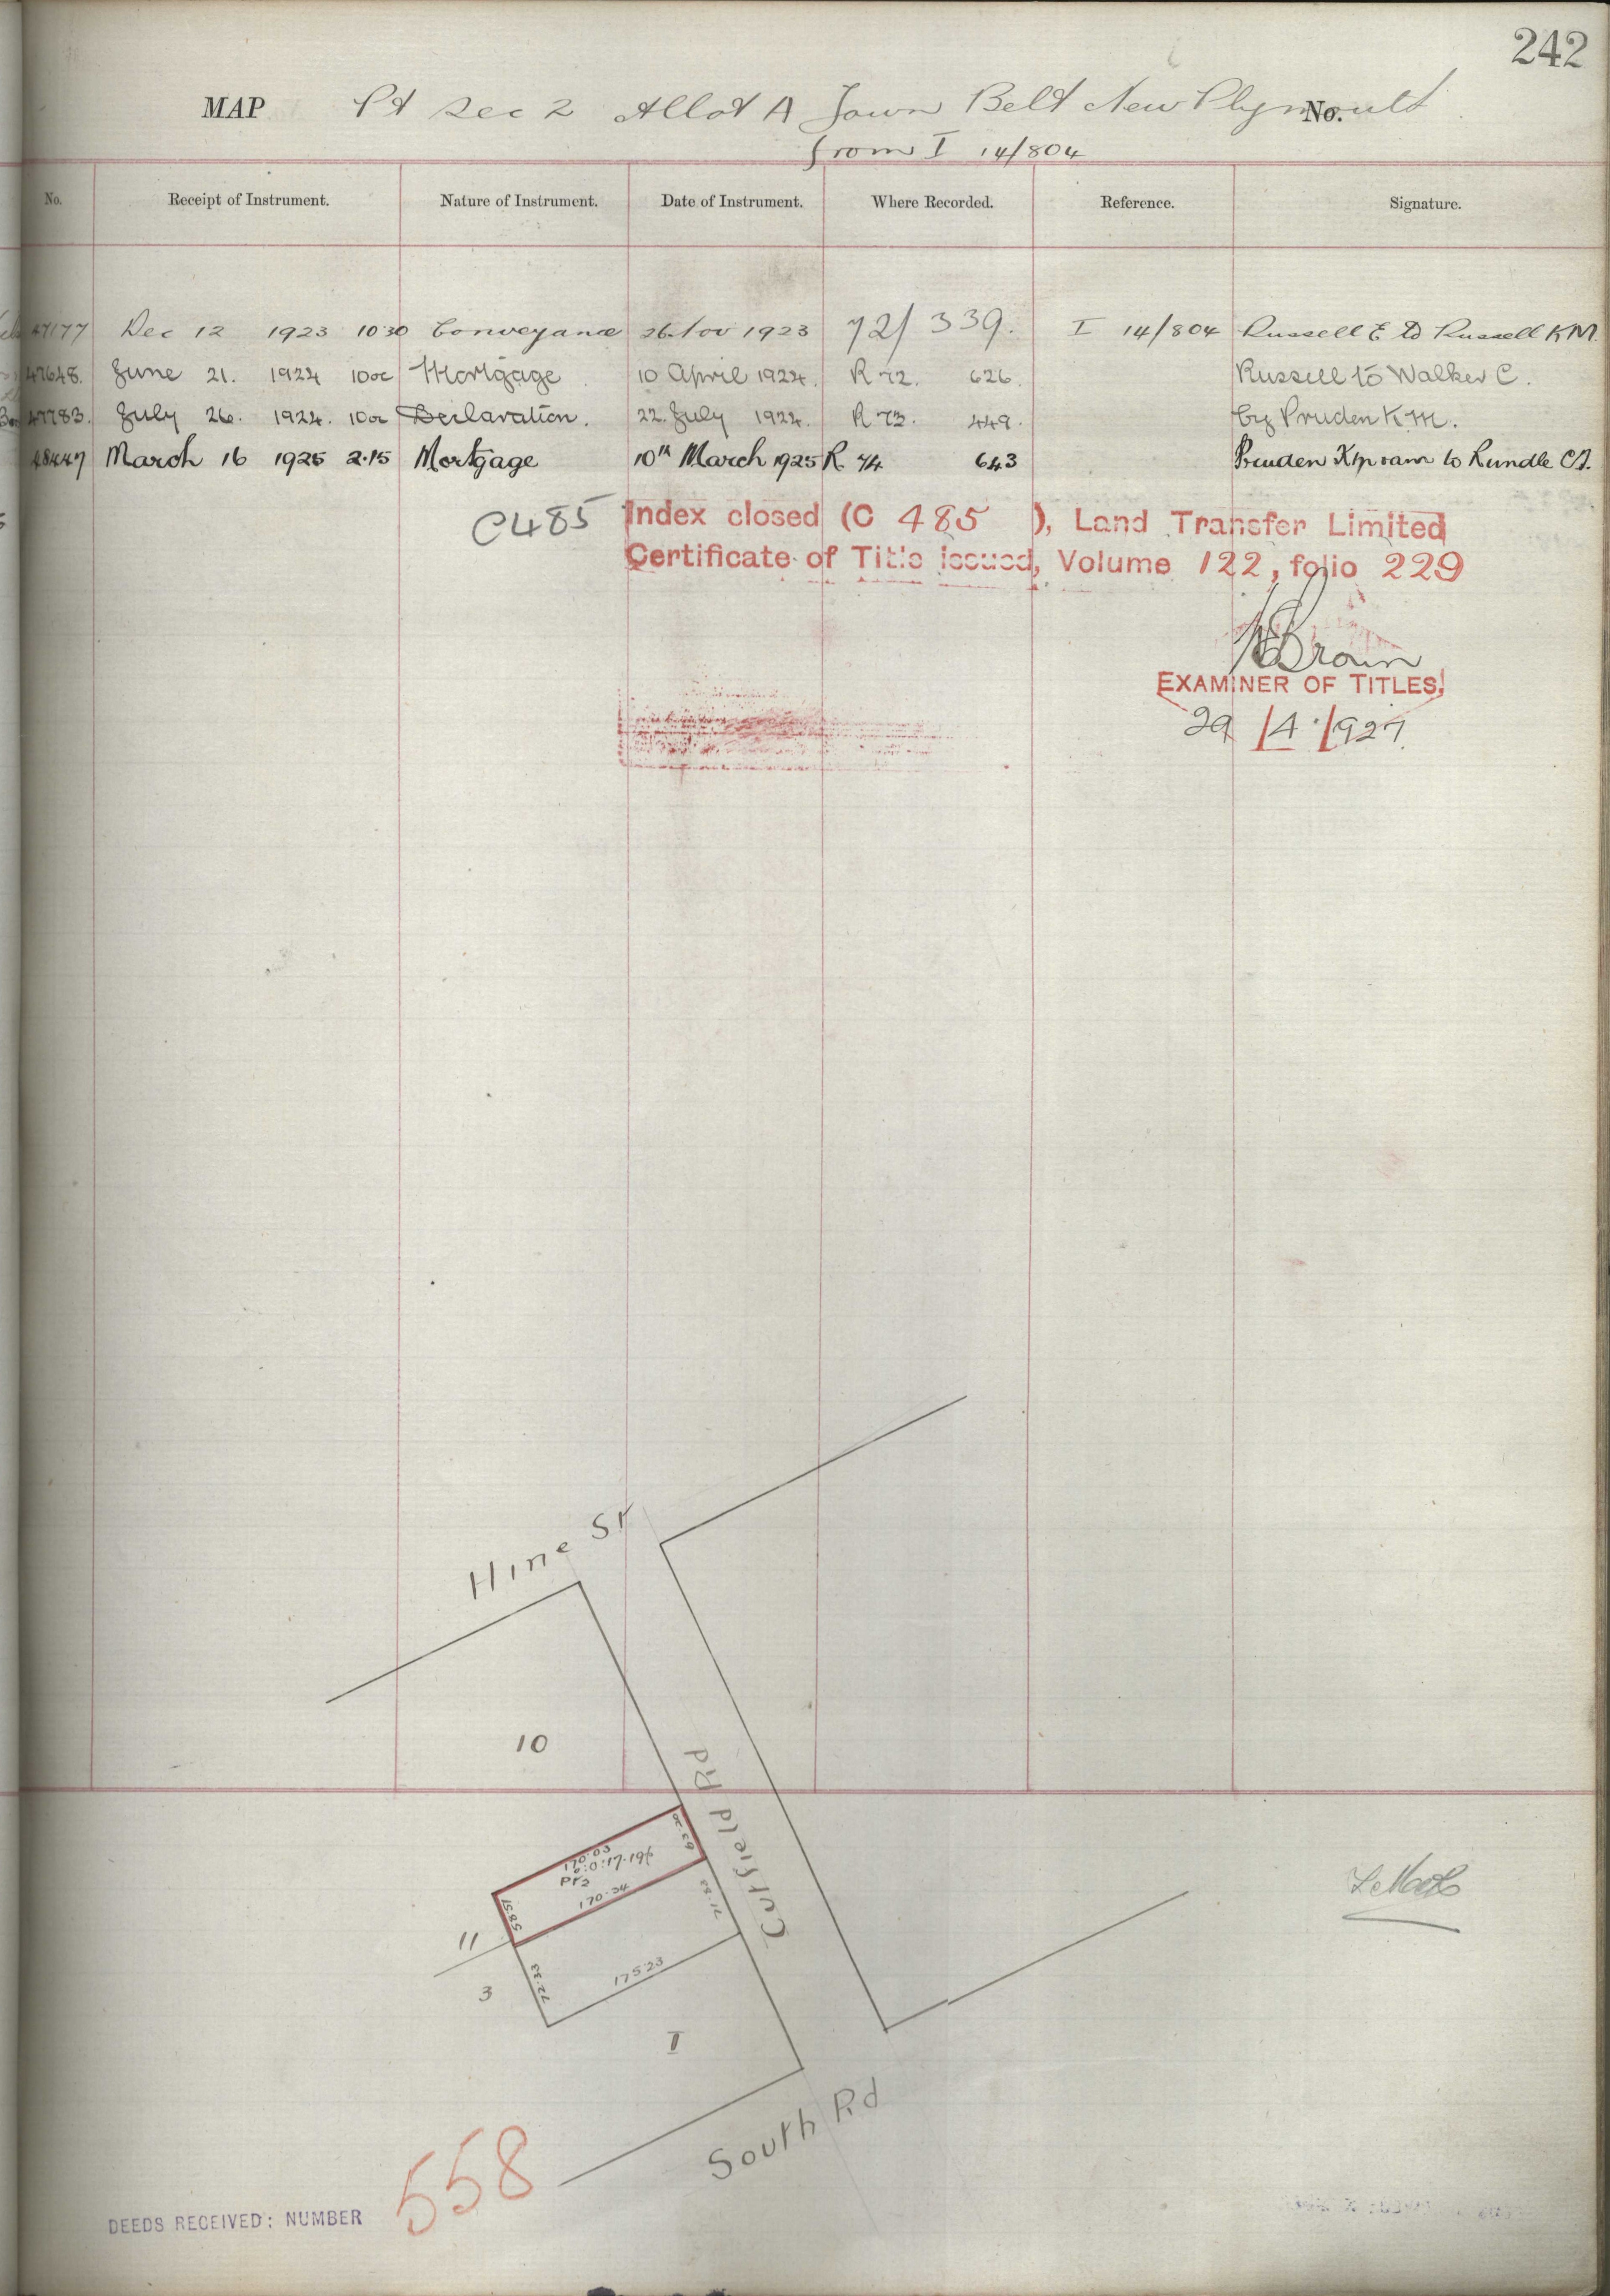 242
MAP Pt Sec 2 Allot A Town Belt New Plymouth No.
from I 14/804
No. Receipt of Instrument. Nature of Instrument. Date of Instrument. Where Recorded. Reference. Signature.
47177 Dec 12 1923 10 30 Conveyance 26 Nov 1923 72/339. I 14/804 Russell E to Russell K M.
47648. June 21. 1924 10 oc Mortgage 10 April 1924. R 72. 626. Russell to Walker C.
47783. July 26. 1924. 10 oc Declaration. 22. July 1924. R 73. 449. by Pruden K M.
48447 March 16 1925 2.15 Mortgage 10th March 1925 R 74 643 Pruden K M to Rundle C J.
C485 Index closed (C 485 ), Land Transfer Limited
Certificate of Title issued, Volume 122, folio 229
Brown
EXAMINER OF TITLES.
29/4/1927.
Hine St
10
Cutfield Rd
63.30
170.03
0:0:17.196
Pt 2
170.34
58.51
71.83
11
3
72.33
175.23
I
South Rd
558
DEEDS RECEIVED: NUMBER